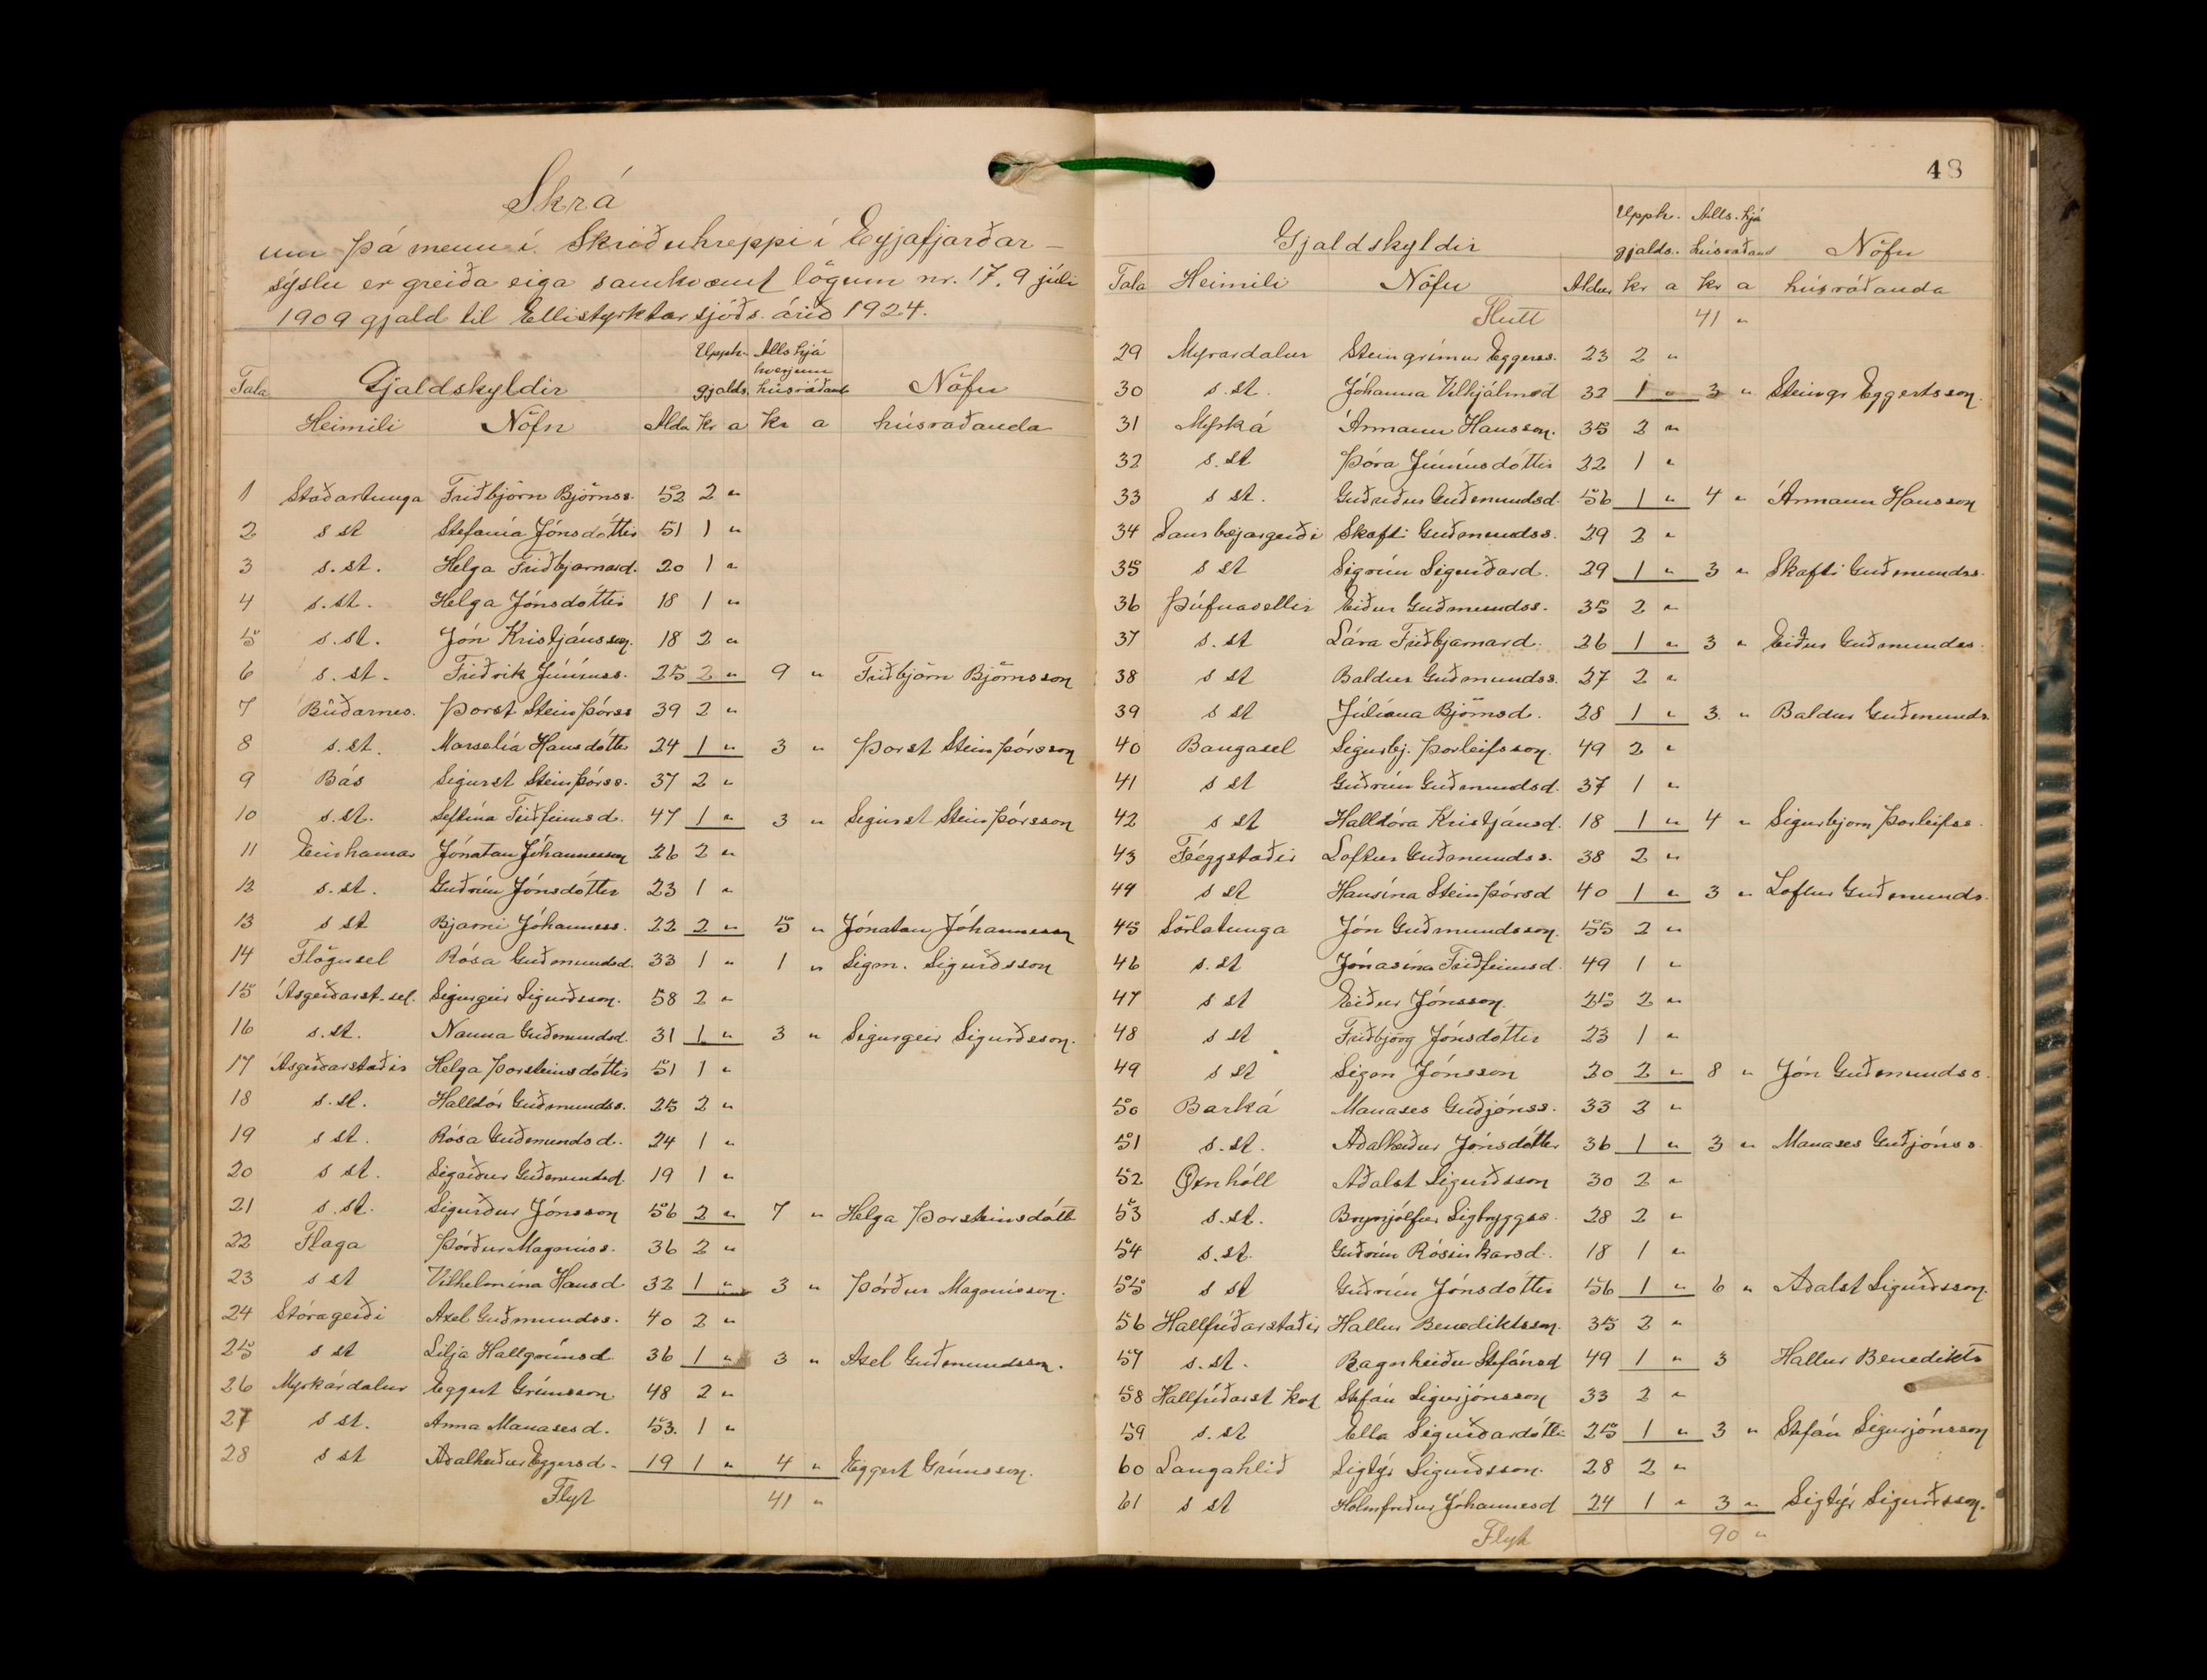 Skrá
um þá menn í Skriðuhreppi í Eyjafjarðar-
sýslu er greiða eiga samkvæmt lögum nr. 17, 9 júli
1909 gjald til Ellistyrktarsjóðs árið 1924.
Upph. Alls hjá
hverjum
Tala Gjaldskyldir gjalds. húsráðand Nöfn
Heimili Nöfn Aldr kr a kr a húsráðanda
1 Staðartunga Friðbjörn Björnss. 52 2 "
2 s st Stefanía Jónsdóttir 51 1 "
3 s. st. Helga Friðbjarnard. 20 1 "
4 s. st. Helga Jónsdóttir 18 1 "
5 s. st. Jón Kristjánsson. 18 2 "
6 s. st. Friðrik Júníuss. 25 2 " 9 " Friðbjörn Björnsson
7 Búðarnes. Þorst Steinþórss 39 2 "
8 s. st. Marselía Hansdóttir 24 1 " 3 " Þorst Steinþórsson
9 Bás Sigurst Steinþórss. 37 2 "
10 s. st. Septína Friðfinnsd. 47 1 " 3 " Sigurst Steinþórsson
11 Einhamar Jónatan Jóhannesson 26 2 "
12 s. st. Guðrún Jónsdóttir 23 1 "
13 s st Bjarni Jóhanness. 22 2 " 5 " Jónatan Jóhannesson
14 Flögusel Rósa Guðmundsd. 33 1 " 1 " Sigm. Sigurðsson
15 Ásgerðarst.sel. Sigurgeir Sigurðsson. 58 2 "
16 s. st. Nanna Guðmundsd. 31 1 " 3 " Sigurgeir Sigurðsson.
17 Ásgerðarstaðir Helga Þorsteinsdóttir 51 1 "
18 s. st. Halldór Guðmundss. 25 2 "
19 s st. Rósa Guðmundsd. 24 1 "
20 s st. Sigríður Guðmundsd. 19 1 "
21 s. st. Sigurður Jónsson 56 2 " 7 " Helga Þorsteinsdótt
22 Flaga Þórður Magnúss. 36 2 "
23 s st Vilhelmína Hansd 32 1 " 3 " Þórður Magnússon.
24 Stóragerði Axel Guðmundss. 40 2 "
25 s st Lilja Hallgrímsd 36 1 " 3 " Axel Guðmundsson.
26 Myrkárdalur Eggert Grímsson 48 2 "
27 s st. Anna Manasesd. 53. 1 "
28 s st Aðalheiður Eggersd. 19 1 " 4 " Eggert Grímsson.
Flyt 41 "
48
Upph. Alls. hjá
Gjaldskyldir gjalds. húsráðand Nöfn
Tala Heimili Nöfn Aldur kr a kr a húsráðanda
Flutt 41 "
29 Myrardalur Steingrímur Eggerss. 23 2 "
30 s. st. Jóhanna Vilhjálmsd 32 1 " 3 " Steingr Eggertsson.
31 Myrká Ármann Hansson. 35 2 "
32 s. st Þóra Júníusdóttir 22 1 "
33 s st. Guðríður Guðmundsd. 56 1 " 4 " Ármann Hansson
34 Saurbæjargerði Skafti Guðmundss. 29 2 "
35 s st Sigrún Sigurðard. 29 1 " 3 " Skafti Guðmundss.
36 Þúfnavellir Eiður Guðmundss. 35 2 "
37 s. st Lára Friðbjarnard. 26 1 " 3 " Eiður Guðmundss.
38 s st Baldur Guðmundss. 27 2 "
39 s st Júlíana Björnsd. 28 1 " 3 " Baldur Guðmunds.
40 Baugasel Sigurbj. Þorleifsson. 49 2 "
41 s st Guðrún Guðmundsd. 37 1 "
42 s st Halldóra Kristjánsd. 18 1 " 4 " Sigurbjorn Þorleifss.
43 Féeggstaðir Loftur Guðmundss. 38 2 "
44 s st Hansína Steinþórsd 40 1 " 3 " Loftur Guðmunds.
45 Sörlatunga Jón Guðmundsson. 55 2 "
46 s. st Jónasína Friðfinnsd. 49 1 "
47 s st Eiður Jónsson. 25 2 "
48 s st Friðbjörg Jónsdóttir 23 1 "
49 s st Sigon Jónsson 20 2 " 8 " Jón Guðmundss.
50 Barká Manases Guðjónss. 33 2 "
51 s. st. Aðalheiður Jónsdóttir 36 1 " 3 " Manases Guðjónss.
52 Öxnhóll Aðalst Sigurðsson 30 2 "
53 s. st. Brynjólfur Sigtryggss. 28 2 "
54 s. st. Guðrún Rósinkarsd. 18 1 "
55 s st Guðrún Jónsdóttir 56 1 " 6 " Aðalst Sigurðsson.
56 Hallfríðarstaðir Hallur Benediktsson. 35 2 "
57 s. st. Ragnheiður Stefánsd 49 1 " 3 Hallur Benedikts
58 Hallfríðarst kot Stefán Sigurjónsson 33 2 "
59 s. st Ella Sigurðardótti 25 1 " 3 " Stefán Sigurjónsson
60 Langahlíð Sigtýr Sigurðsson. 28 2 "
61 s st Hólmfríður Jóhannesd 24 1 " 3 " Sigtýr Sigurðsson.
Flyt 90 "